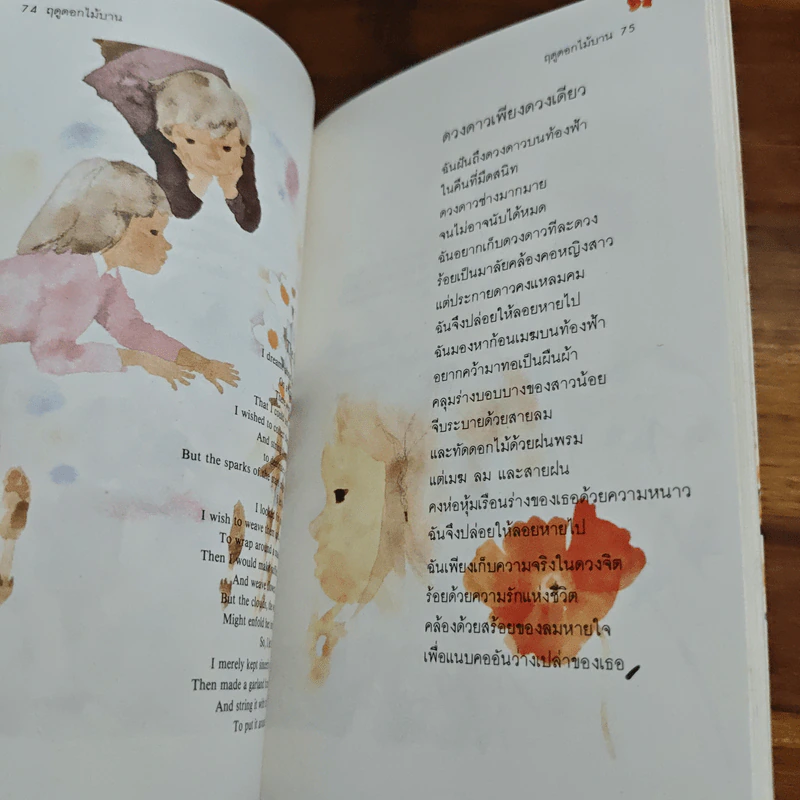 74 ฤดูดอกไม้บาน
I dream
That I could
I wished to
And
to
But the sparks of
I
I wish to weave
To wrap around
Then I would
And weave
But the clouds, the
Might enfold her
So, I
I merely kept
Then made a garland
And string it with
To put it
ฤดูดอกไม้บาน 75
ดวงดาวเพียงดวงเดียว
ฉันฝันถึงดวงดาวบนท้องฟ้า
ในคืนที่มืดสนิท
ดวงดาวช่างมากมาย
จนไม่อาจนับได้หมด
ฉันอยากเก็บดวงดาวทีละดวง
ร้อยเป็นมาลัยคล้องคอหญิงสาว
แต่ประกายดาวคงแหลมคม
ฉันจึงปล่อยให้ลอยหายไป
ฉันมองหาก้อนเมฆบนท้องฟ้า
อยากคว้ามาทอเป็นผืนผ้า
คลุมร่างบอบบางของสาวน้อย
จีบระบายด้วยสายลม
และทัดดอกไม้ด้วยฝนพรม
แต่เมฆ ลม และสายฝน
คงห่อหุ้มเรือนร่างของเธอด้วยความหนาว
ฉันจึงปล่อยให้ลอยหายไป
ฉันเพียงเก็บความจริงในดวงจิต
ร้อยด้วยความรักแห่งชีวิต
คล้องด้วยสร้อยของลมหายใจ
เพื่อแนบคออันว่างเปล่าของเธอ